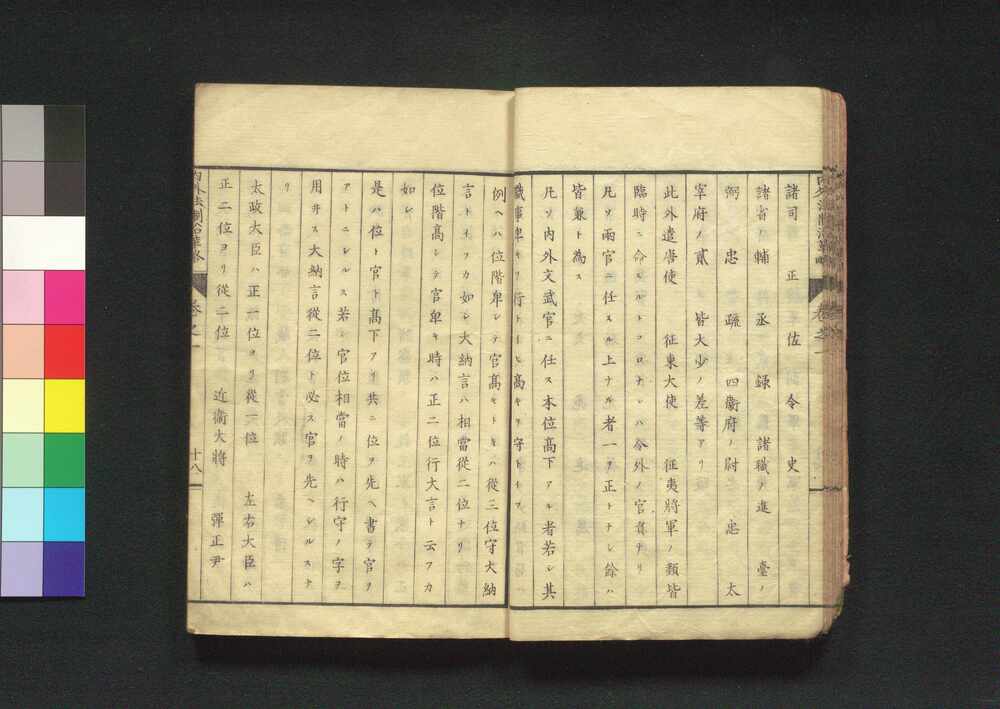 諸司ノ 正 佐 令 史
諸省ノ 輔 丞 録 諸職ノ進 臺ノ
弼 忠 疏 四衞府ノ尉 志 太
宰府ノ貳 皆大少ノ差等アリ
此外遣唐使 征東大使 征夷將軍ノ類皆
臨時ニ命スルトコロナレハ令外ノ官員ナリ
凡ソ兩官ニ任スル上ナル者一ヲ正トナシ餘ハ
皆兼ト為ス
凡ソ内外文武官ニ任ス本位髙下アル者若シ其
職事卑キヲ行トイヒ髙キヲ守トイフ
例ヘハ位階卑シテ官髙キトキハ從三位守大納
言トイフカ如シ大納言ハ相當從二位ナリ
位階髙シテ官卑キ時ハ正二位行大言ト云フカ
如シ
是ハ位ト官ト髙下アリ共ニ位ヲ先ヘ書テ官ヲ
アトニシルス若シ官位相當ノ時ハ行守ノ字ヲ
用井ス大納言從二位ト必ス官ヲ先ヘシルスナ
リ
太政大臣ハ正一位ヨリ從一位 左右大臣ハ
正二位ヨリ從二位 近衞大將 彈正尹
内外法制沿革略 卷之一 十八